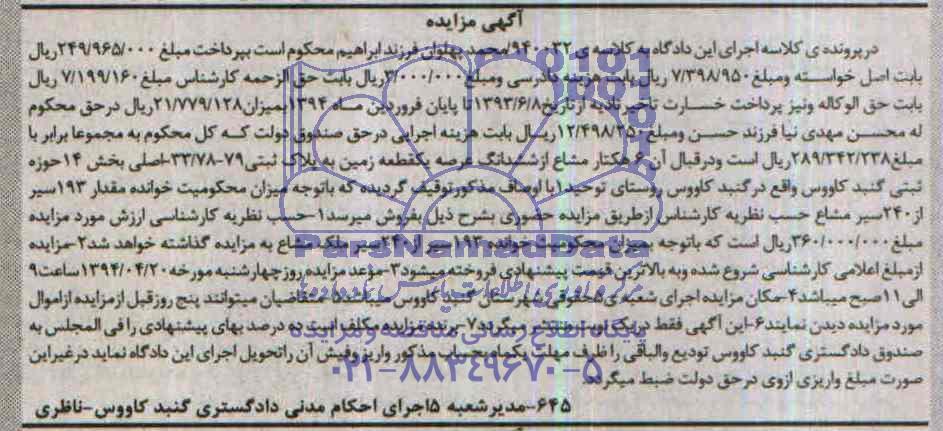 آگهی مزایده
درپرونده ی کلاسه اجرای این دادگاه به کلاسه ی ۹۴۰۰۳۲/محمد پهلوان فرزند ابراهیم محکوم است بپرداخت مبلغ ۲۴۹/۹۶۵/۰۰۰ریال
بابت اصل خواسته ومبلغ ۷/۳۹۸/۹۵۰ ریال بابت هزینه دادرسی ومبلغ ۳/۰۰۰/۰۰۰ریال بابت حق الزحمه کارشناس مبلغ ۷/۱۹۹/۱۶۰ ریال
بابت حق الوکاله ونیز پرداخت خسارت تاخیرتادیه ازتاریخ۱۳۹۳/۶/۸تا پایان فروردین ماه ۱۳۹۴بمیزان۲۱/۷۷۹/۱۲۸ریال درحق محکوم
له محسن مهدی نیا فرزند حسن ومبلغ ۱۲/۴۹۸/۲۵۰ریال بابت هزینه اجرایی درحق صندوق دولت که کل محکوم به مجموعا برابر با
مبلغ۲۸۹/۳۴۲/۲۳۸ریال است ودرقبال آن ۶هکتار مشاع ازششدانگ عرصه یکقطعه زمین به پلاک ثبتی۷۹-۳۳/۷۸-اصلی بخش ۱۴حوزه
ثبتی گنبد کاووس واقع درگنبد کاووس روستای توحید۱با اوصاف مذکورتوقیف گردیده که باتوجه میزان محکومیت خوانده مقدار ۱۹۳سیر
از۲۴۰سیر مشاع حسب نظریه کارشناس ازطریق مزایده حضوری بشرح ذیل بفروش میرسد۱-حسب نظریه کارشناسی ارزش مورد مزایده
مبلغ ۳۶۰/۰۰۰/۰۰۰ریال است که باتوجه بمیزان محکومیت خوانده ۱۹۳سیر از۲۴۰سیر ملک مشاع به مزایده گذاشته خواهد شد۲-مزایده
ازمبلغ اعلامی کارشناسی شروع شده وبه بالاترین قیمت پیشنهادی فروخته میشود۳-موعد مزایده روز چهارشنبه مورخه ۱۳۹۴/۰۴/۲۰ساعت۹
الی۱۱صبح میباشد۴-مکان مزایده اجرای شعبه ی۵حقوقی شهرستان گنبد کاووس میباشد۵-متقاضیان میتوانند پنج روزقبل ازمزایده ازاموال
مورد مزایده دیدن نمایند۶-این آگهی فقط دریک نوبت منتشر میگردد۷-برنده مزایده مکلف است ده درصد بهای پیشنهادی را فی المجلس به
صندوق دادگستری گنبد کاووس تودیع والباقی را ظرف مهلت یکماه بحساب مذکور واریز وفیش آن راتحویل اجرای این دادگاه نماید درغیراین
صورت مبلغ واریزی ازوی درحق دولت ضبط میگردد.
۶۴۵-مدیرشعبه ۵اجرای احکام مدنی دادگستری گنبد کاووس-ناظری
ParsNamadData
پایگاه اطلاع رسانی مناقصه و مزایده
۰۲۱-۸۸۳۴۹۶۷۰-۵